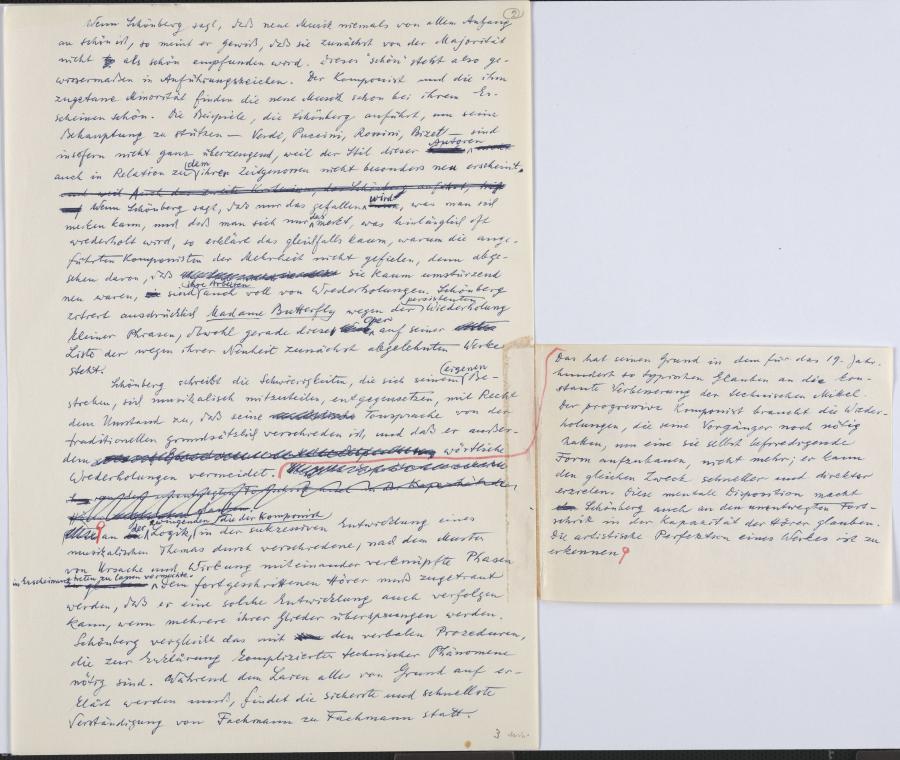 2
Wenn Schönberg sagt, daß neue Musik niemals von allem Anfang
an schön ist, so meint er gewiß, daß sie zunächst von der Majorität
nicht als schön empfunden wird. Dieses 'schön' steht also ge-
wissermaßen in Anführungszeichen. Der Komponist und die ihm
zugetane Minorität finden die neue Musik schon bei ihrem Er-
scheinen schön. Die Beispiele, die Schönberg anführt, um seine
Behauptung zu stützen — Verdi, Puccini, Rossini, Bizet — sind
insofern nicht ganz überzeugend, weil der Stil dieser Autoren
auch in Relation zu dem ihrer Zeitgenossen nicht besonders neu erscheint.
Wenn Schönberg sagt, daß nur das gefallen wird, was man sich
merken kann, und daß man sich nur das merkt, was hinlänglich oft
wiederholt wird, so erklärt das gleichfalls kaum, warum die ange-
führten Komponisten der Mehrheit nicht gefielen, denn abge-
sehen davon, daß sie kaum umstürzend
neu waren, sind ihre Arbeiten auch voll von Wiederholungen. Schönberg
zitiert ausdrücklich Madame Butterfly wegen der persistenten Wiederholung
kleiner Phrasen, obwohl gerade diese Oper auf seiner
Liste der wegen ihrer Neuheit zunächst abgelehnten Werke
steht.
Schönberg schreibt die Schwierigkeiten, die sich seinem eigenen Be-
streben, sich musikalisch mitzuteilen, entgegensetzen, mit Recht
dem Umstand zu, daß seine Tonsprache von der
traditionellen grundsätzlich verschieden ist, und daß er außer-
dem wörtliche
Wiederholungen vermeidet.
an der zwingenden Logik, die der Komponist in der sukzessiven Entwicklung eines
musikalischen Themas durch verschiedene, nach dem Muster
von Ursache und Wirkung miteinander verknüpfte Phasen
in Erscheinung treten zu lassen vermochte. Dem fortgeschrittenen Hörer muß zugetraut
werden, daß er eine solche Entwicklung auch verfolgen
kann, wenn mehrere ihrer Glieder übersprungen werden.
Schönberg vergleicht das mit den verbalen Prozeduren,
die zur Erklärung komplizierter technischer Phänomene
nötig sind. Während dem Laien alles von Grund auf er-
klärt werden muß, findet die sicherste und schnellste
Verständigung von Fachmann zu Fachmann statt.
3 Min.
Das hat seinen Grund in dem für das 19. Jahr-
hundert so typischen Glauben an die kon-
stante Verbesserung der technischen Mittel.
Der progressive Komponist braucht die Wieder-
holungen, die seine Vorgänger noch nötig
hatten, um eine sie selbst befriedigende
Form aufzubauen, nicht mehr; er kann
den gleichen Zweck schneller und direkter
erzielen. Diese mentale Disposition macht
Schönberg auch an den unentwegten Fort-
schritt in der Kapazität der Hörer glauben.
Die artistische Perfektion eines Werkes ist zu
erkennen